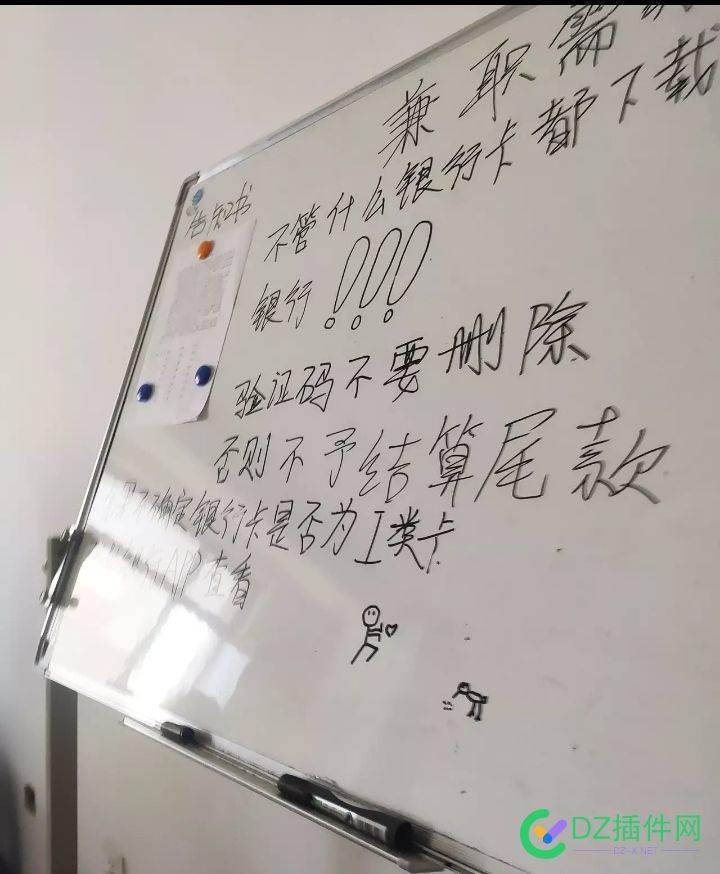 兼职需
不管什么银行卡都下载
银行!!!
告知书
验证码不要删除
否则不予结算尾款
不确定银行卡是否为I类卡
行APP查看
DZ插件网
DZ-X.NET